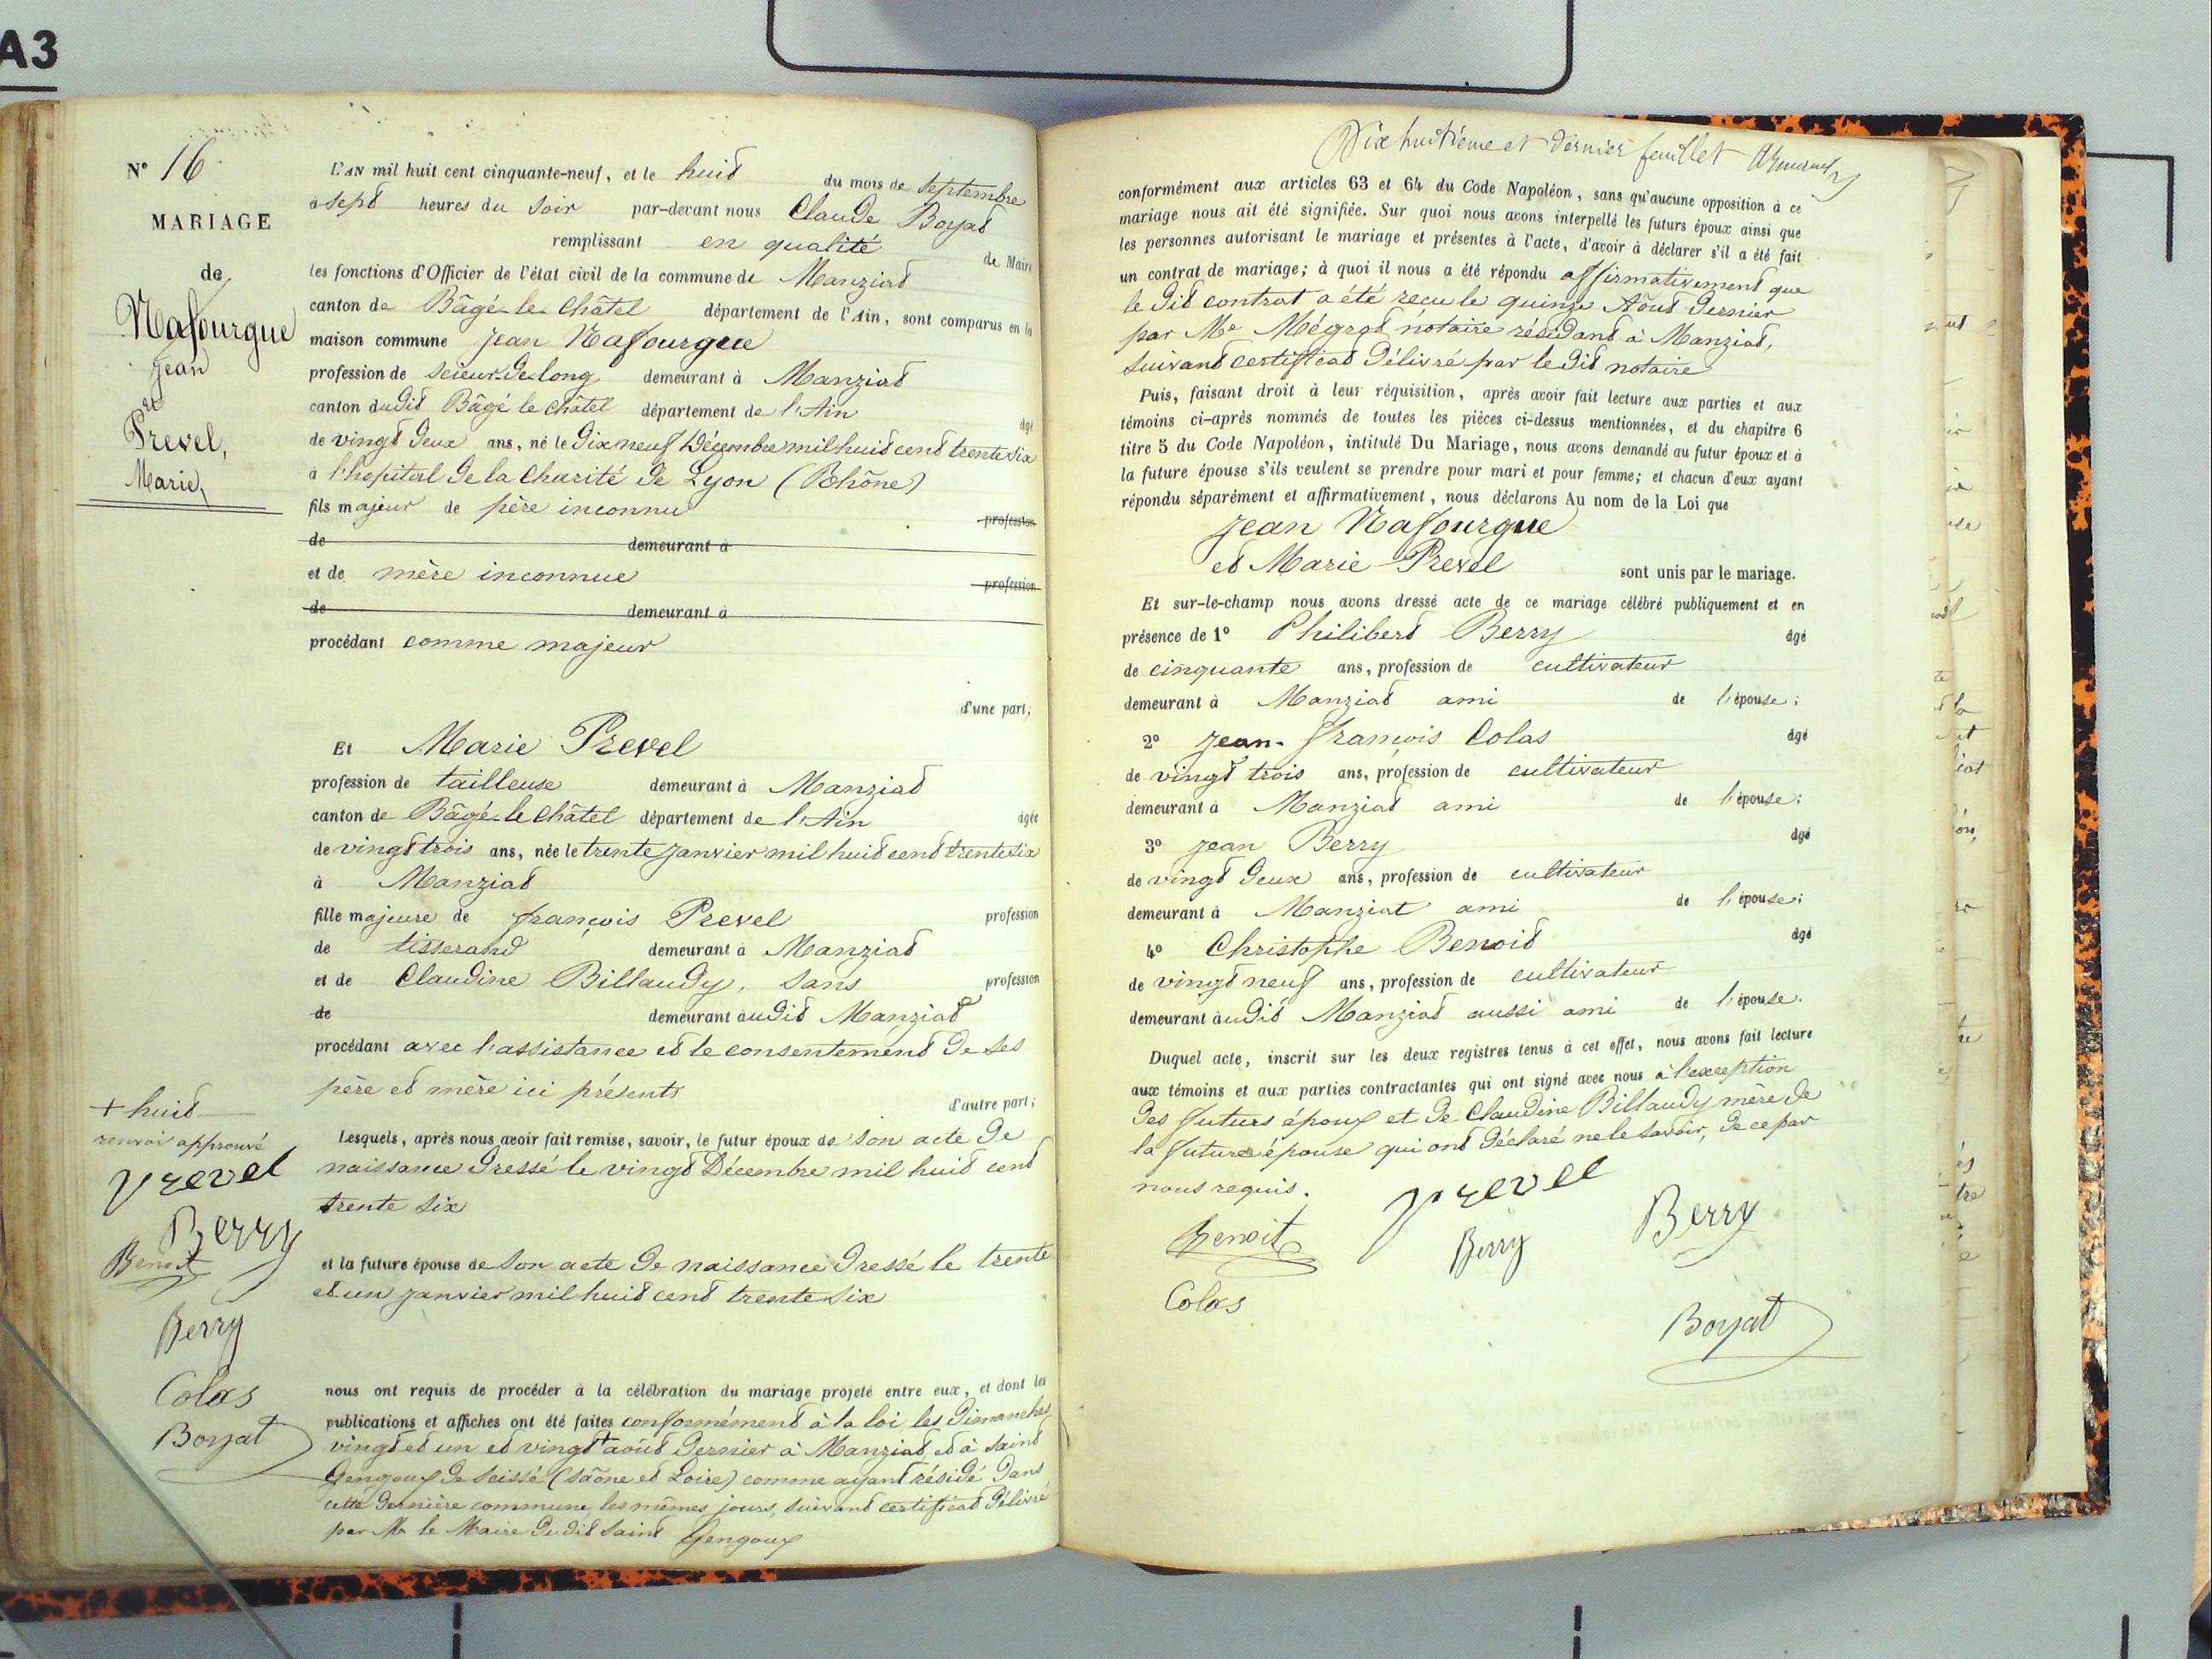 A3
N° 16
MARIAGE
de
Nafourgue
Jean
et
Prevel,
Marie,
L'AN mil huit cent cinquante-neuf, et le huit du mois de Septembre
à sept heures du soir par-devant nous Claude Boyat
remplissant en qualité de Maire
les fonctions d'Officier de l'état civil de la commune de Manziat
canton de Bâgé-le-Châtel département de l'Ain, sont comparus en la
maison commune Jean Nafourgue
profession de scieur-de-long demeurant à Manziat
canton dudit Bâgé le Châtel département de l'Ain âgé
de vingt deux ans, né le dix neuf Décembre mil huit cent trente six
à l'hopital de la Charité de Lyon (Rhône)
fils majeur de père inconnu profession
de demeurant à
et de mère inconnue profession
de demeurant à
procédant comme majeur
d'une part;
Et Marie Prevel
profession de tailleuse demeurant à Manziat
canton de Bâgé-le Châtel département de l'Ain âgée
de vingt trois ans, née le trente janvier mil huit cent trente six
à Manziat
fille majeure de françois Prevel profession
de tisserand demeurant à Manziat
et de Claudine Billaudy, sans profession
de demeurant audit Manziat
procédant avec l'assistance et le consentement de ses
père et mère ici présents
d'autre part;
Lesquels, après nous avoir fait remise, savoir, le futur époux de son acte de
naissance dressé le vingt Décembre mil huit cent
trente six
et la future épouse de son acte de naissance dressé le trente
et un janvier mil huit cent trente six
nous ont requis de procéder à la célébration du mariage projeté entre eux, et dont les
publications et affiches ont été faites conformément à la loi les Dimanches
vingt et un et vingt + août dernier à Manziat et à Saint
Gengoux de Scissé (Saône et Loire) comme ayant résidé dans
cette dernière commune les mêmes jours, suivant certificat délivré
par Mr le Maire dudit Saint Gengoux
+ huit
renvoi approuvé
Prevel
Berry
Benoit
Berry
Colas
Boyat
Dix huitième et dernier feuillet
conformément aux articles 63 et 64 du Code Napoléon, sans qu'aucune opposition à ce
mariage nous ait été signifiée. Sur quoi nous avons interpellé les futurs époux ainsi que
les personnes autorisant le mariage et présentes à l'acte, d'avoir à déclarer s'il a été fait
un contrat de mariage; à quoi il nous a été répondu affirmativement que
le dit contrat a été reçu le quinze Août dernier
par Me notaire résidant à Manziat,
suivant certificat délivré par le dit notaire
Puis, faisant droit à leur réquisition, après avoir fait lecture aux parties et aux
témoins ci-après nommés de toutes les pièces ci-dessus mentionnées, et du chapitre 6
titre 5 du Code Napoléon, intitulé Du Mariage, nous avons demandé au futur époux et à
la future épouse s'ils veulent se prendre pour mari et pour femme; et chacun d'eux ayant
répondu séparément et affirmativement, nous déclarons Au nom de la Loi que
Jean Nafourgue
et Marie Prevel sont unis par le mariage.
Et sur-le-champ nous avons dressé acte de ce mariage célébré publiquement et en
présence de 1° Philibert Berry âgé
de cinquante ans, profession de cultivateur
demeurant à Manziat ami de l'épouse;
2° Jean-françois Colas âgé
de vingt trois ans, profession de cultivateur
demeurant à Manziat ami de l'épouse;
3° Jean Berry âgé
de vingt deux ans, profession de cultivateur
demeurant à Manziat ami de l'épouse;
4° Christophe Benoit âgé
de vingt neuf ans, profession de cultivateur
demeurant audit Manziat aussi ami de l'épouse.
Duquel acte, inscrit sur les deux registres tenus à cet effet, nous avons fait lecture
aux témoins et aux parties contractantes qui ont signé avec nous à l'exception
des futurs époux et de Claudine Billaudy mère de
la future épouse qui ont déclaré ne le savoir, de ce par
nous requis.
Prevel
Benoit Berry Berry
Colas
Boyat